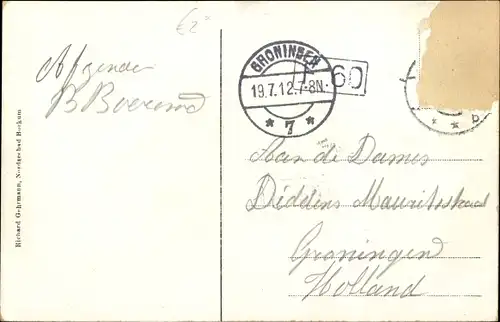 €2
Afzender
B Boerema
Richard Gehrmann, Nordseebad Borkum
GRONINGEN
19.7.12.7-8N.
* 7 *
T 60
* * b
Aan de Dames
Diddens Mauritsstraat
Groningen
Holland